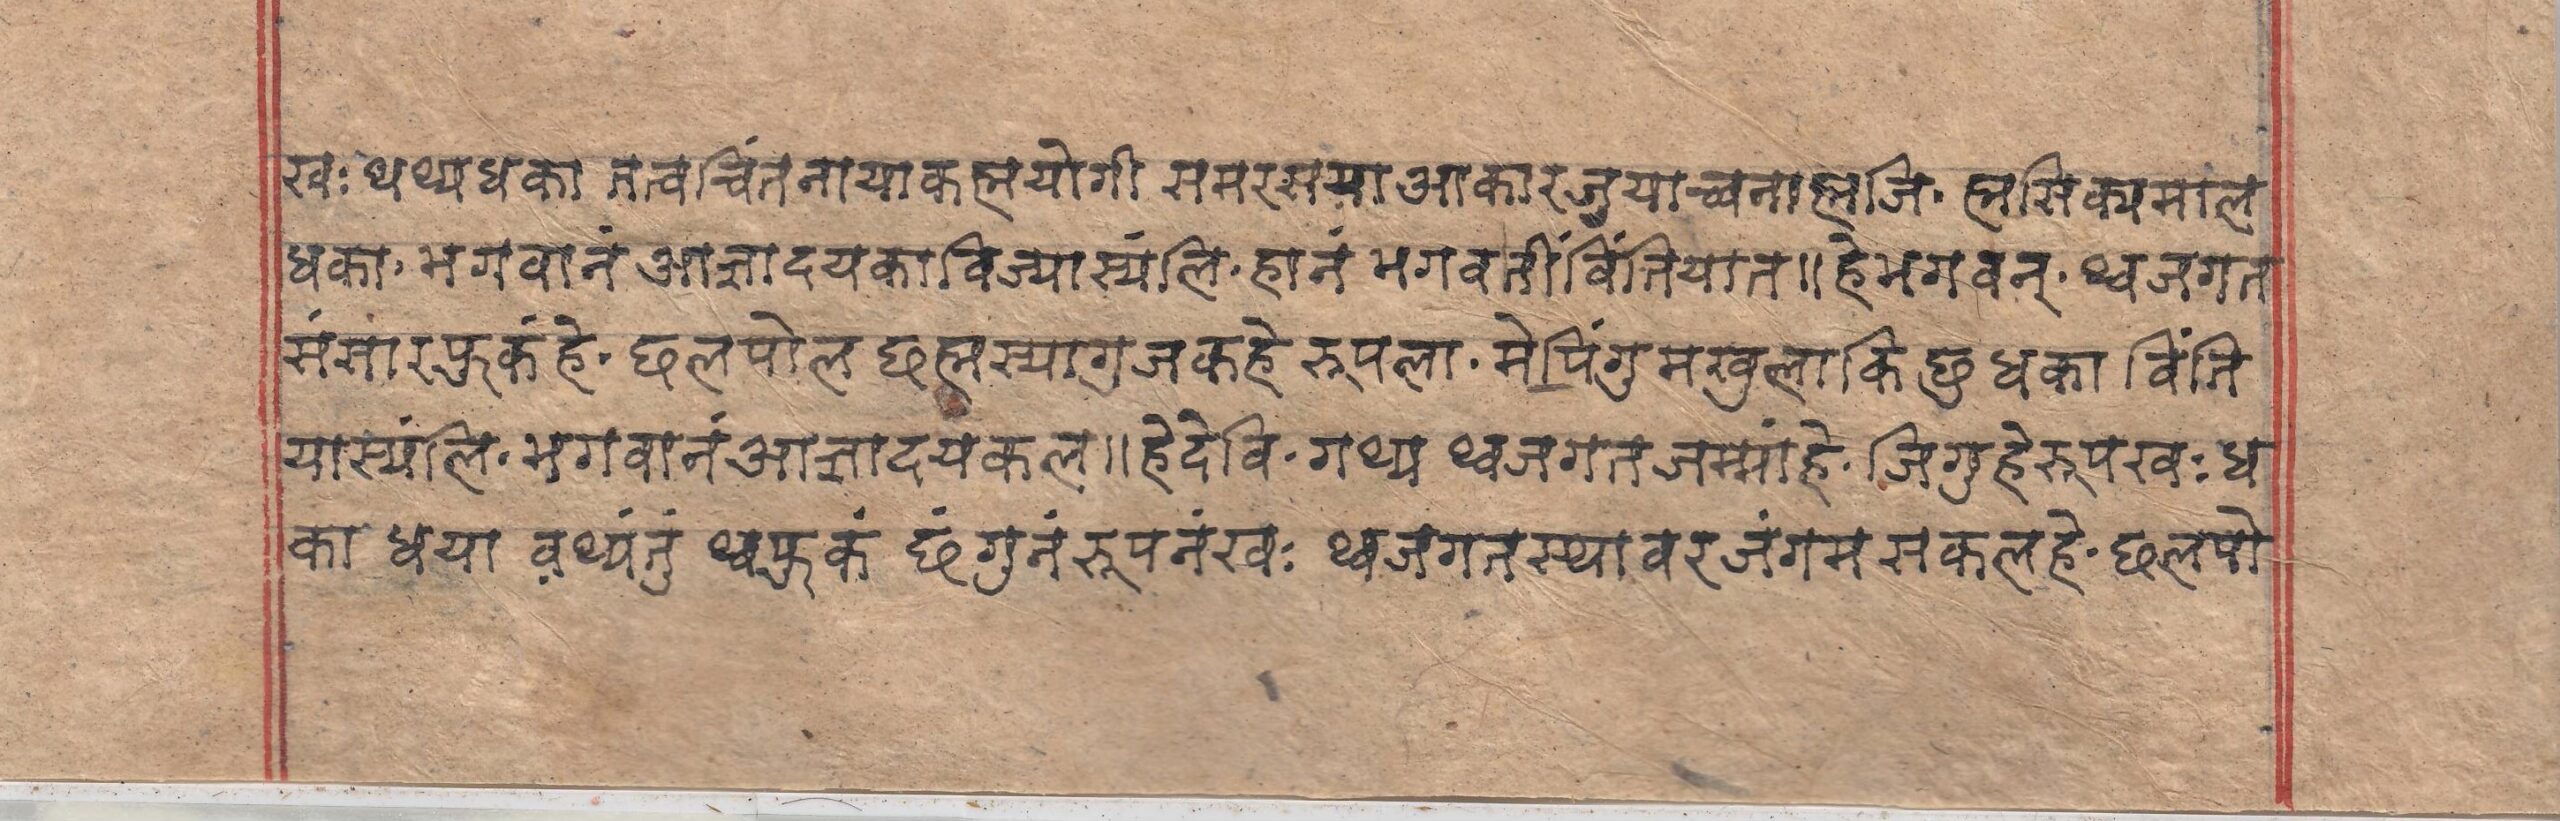 खः थथ्यधका तत्वचिंतनायाकह्मयोगी समरसया आकारजुयाच्वनाह्मजि· ह्मसिक्यमाल
धका· भगवानं आज्ञादयकाविज्यास्यंलि· हानं भगवतीं विंतियात॥ हेभगवन्· थ्वजगत
संसारफुकंहे· छलपोल छह्मस्यागुजकहे रूपला· मेपिंगु मखुलाकि छु धका विंति
यास्यंलि· भगवानं आज्ञादयकल॥ हेदेवि· गथ्य थ्वजगत जम्मांहे· जिगुहेरूपखः ध
का धया व़थ्यंतुं थ्वफुकं छंगुनं रूपनंखः थ्वजगतस्थावरजंगम सकलहे· छलपो